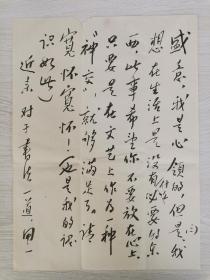 盛意，我是心领的，但是，我
想在生活上是没有什么必要的东
西，此事希望你不要放在心上，
只要是在文艺上作为一种
“神交”，就够满足了。请
宽怀宽怀！（这是我的认
识如此）
近来对于书法一道，用一
（三）